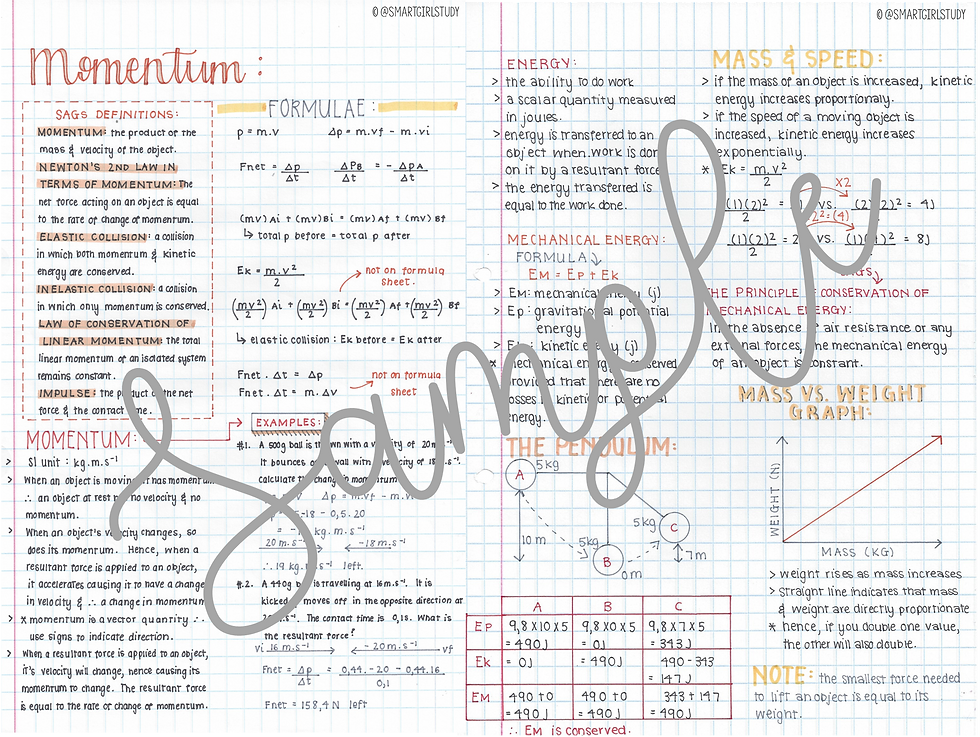 © @SMARTGIRLSTUDY
Momentum:
SAGS DEFINITIONS:
MOMENTUM: the product of the
mass & velocity of the object.
NEWTON'S 2ND LAW IN
TERMS OF MOMENTUM: The
net force acting on an object is equal
to the rate of change of momentum.
ELASTIC COLLISION: a collision
in which both momentum & kinetic
energy are conserved.
INELASTIC COLLISION: a collision
in which only momentum is conserved.
LAW OF CONSERVATION OF
LINEAR MOMENTUM: the total
linear momentum of an isolated system
remains constant.
IMPULSE: the product of the net
force & the contact time.
FORMULAE:
p = m.v Δp = m.vf - m.vi
Fnet = Δp/Δt ΔPB/Δt = - ΔPA/Δt
(mv)Ai + (mv)Bi = (mv)Af + (mv)Bf
↳ total p before = total p after
Ek = m.v²/2 not on formula
sheet.
(mv²/2)Ai + (mv²/2)Bi = (mv²/2)Af + (mv²/2)Bf
↳ elastic collision : Ek before = Ek after
Fnet . Δt = Δp
Fnet . Δt = m. Δv not on formula
sheet
MOMENTUM:
> SI unit : kg.m.s⁻¹
> When an object is moving it has momentum
∴ an object at rest no velocity & no
momentum.
> When an object's velocity changes, so
does its momentum. Hence, when a
resultant force is applied to an object,
it accelerates causing it to have a change
in velocity & ∴ a change in momentum
> * momentum is a vector quantity ∴
use signs to indicate direction.
> When a resultant force is applied to an object,
it's velocity will change, hence causing its
momentum to change. The resultant force
is equal to the rate of change of momentum.
EXAMPLES:
#1. A 500g ball is thrown with a velocity of 20m.s⁻¹.
It bounces off wall with a velocity of
calculate the change in momentum
Δp = m.vf - m.vi
-18 - 0,5.20
= kg.m.s⁻¹
20 m.s⁻¹ -18 m.s⁻¹
∴ 19 kg.m.s⁻¹ left.
#2. A 440g ball is travelling at 16m.s⁻¹. It is
kicked & moves off in the opposite direction at
The contact time is 0,1s. What is
the resultant force?
vi 16 m.s⁻¹ -20 m.s⁻¹ vf
Fnet = Δp/Δt = 0,44.-20 - 0,44.16/0,1
Fnet = 158,4 N left
© @SMARTGIRLSTUDY
ENERGY:
> the ability to do work
> a scalar quantity measured
in joules.
> energy is transferred to an
object when work is done
on it by a resultant force
> the energy transferred is
equal to the work done.
MECHANICAL ENERGY:
FORMULA
EM = EP + EK
> EM: mechanical energy (j)
> Ep: gravitational potential
energy
> Ek: kinetic energy (j)
* mechanical energy conserved
provided that there are no
losses in kinetic or potential
energy.
MASS & SPEED:
> if the mass of an object is increased, kinetic
energy increases proportionally.
> if the speed of a moving object is
increased, kinetic energy increases
exponentially.
* Ek = m.v²/2
x2
(1)(2)²/2 = vs. (2)(2)²/2 = 4J
2² = (4)
(1)(2)²/2 = 2 vs. (1)(4)²/2 = 8J
SAGS
THE PRINCIPLE OF CONSERVATION OF
MECHANICAL ENERGY:
In the absence of air resistance or any
external forces, the mechanical energy
of an object is constant.
THE PENDULUM:
A 5kg
10 m
5kg
B
0m
5kg
C
7m
A B C
EP 9,8 X 10 X 5 9,8 X 0 X 5 9,8 X 7 X 5
= 490J = 0J = 343J
Ek = 0J = 490J 490 - 343
= 147J
EM 490 + 0 490 + 0 343 + 147
= 490J = 490J = 490J
∴ EM is conserved.
MASS VS. WEIGHT
GRAPH:
WEIGHT (N)
MASS (KG)
> weight rises as mass increases
> straight line indicates that mass
& weight are directly proportionate
* hence, if you double one value,
the other will also double.
NOTE: the smallest force needed
to lift an object is equal to its
weight.
Sample